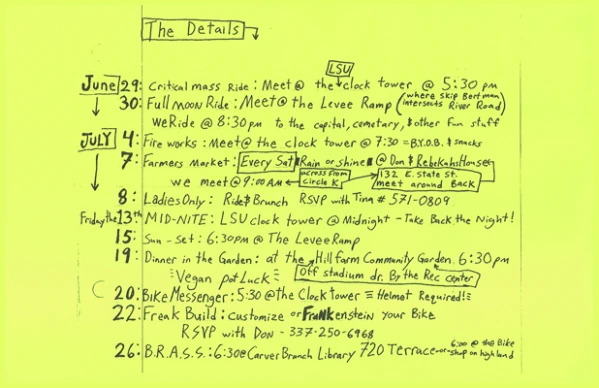 The Details
June 29: Critical mass Ride: Meet @ the LSU clock tower @ 5:30 pm
30: Full Moon Ride: Meet @ the Levee Ramp (where Skip Bertman intersects River Road)
we Ride @ 8:30 pm to the capital, cemetary, & other fun stuff
JULY 4: Fire works: Meet @ the clock tower @ 7:30 = B.Y.O.B. & snacks
7: Farmers Market: Every Sat Rain or shine @ Don & Rebekahs House
we meet @ 9:00 AM across from Circle K 132 E. State St. meet around Back
8: Ladies Only: Ride & Brunch RSVP with Tina # 571-0809
Friday the 13th MID-NITE: LSU clock tower @ Midnight - Take Back the Night!
15: Sun-Set: 6:30pm @ The Levee Ramp
19: Dinner in the Garden: at the Hill Farm Community Garden. 6:30 pm
Vegan pot Luck Off stadium dr. By the Rec center
20: Bike Messenger: 5:30 @ the Clock tower = Helmet Required! =
22: Freak Build: Customize or FranKenstein your Bike
RSVP with Don - 337-250-6968
26: B.R.A.S.S.: 6:30 @ Carver Branch Library 720 Terrace -or- 6:00 @ the Bike shop on highland